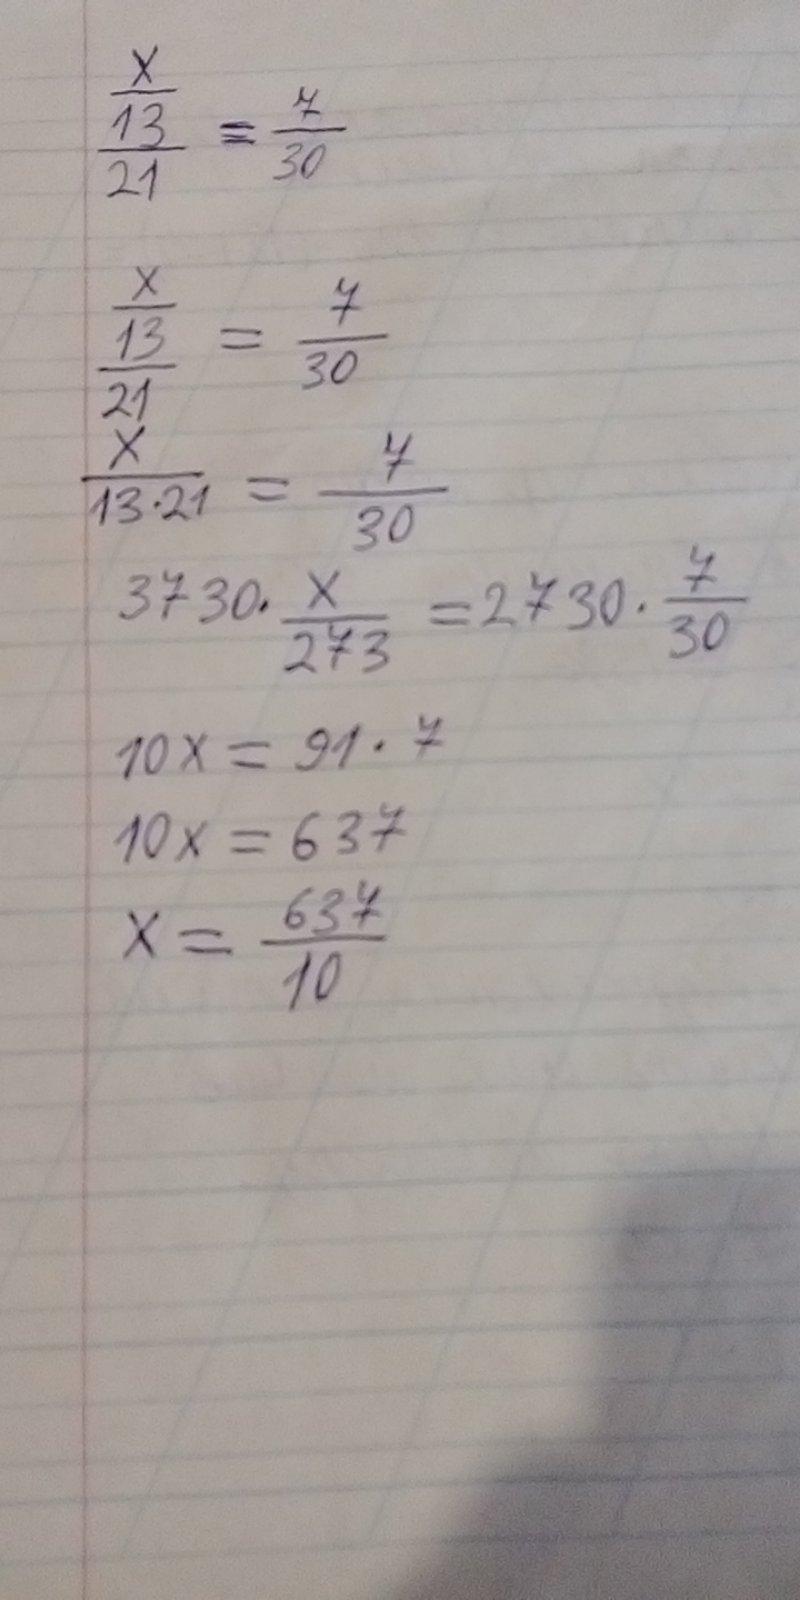 x/13/21 = 7/30
x/13/21 = 7/30
x/13·21 = 7/30
3730· x/273 = 2730· 7/30
10x = 91·7
10x = 637
x = 637/10